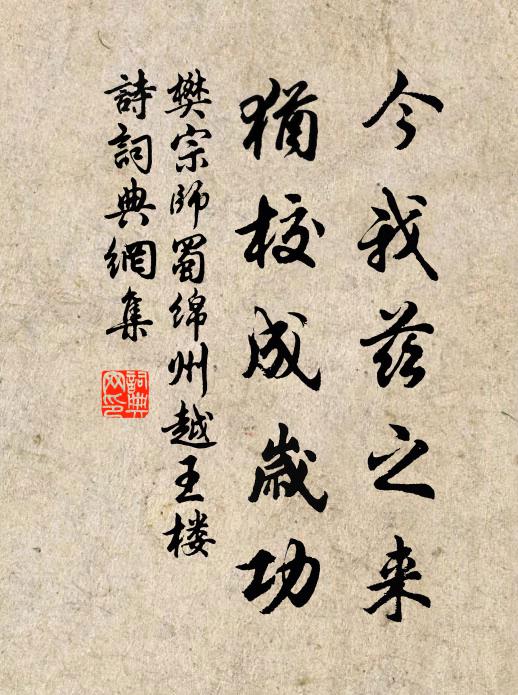 今我兹之来
猶校成歲功
樊宗師蜀绵州越王楼
詩詞典網集
詞典
网印